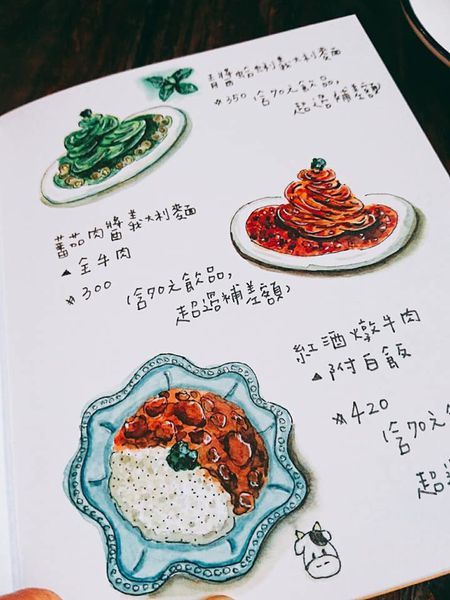 青醬蛤蜊義大利麵
350 (含70元飲品,
超過補差額)
蕃茄肉醬義大利麵
▲全牛肉
300 (含70元飲品,
超過補差額)
紅酒燉牛肉
▲附白飯
420
含70元
超過